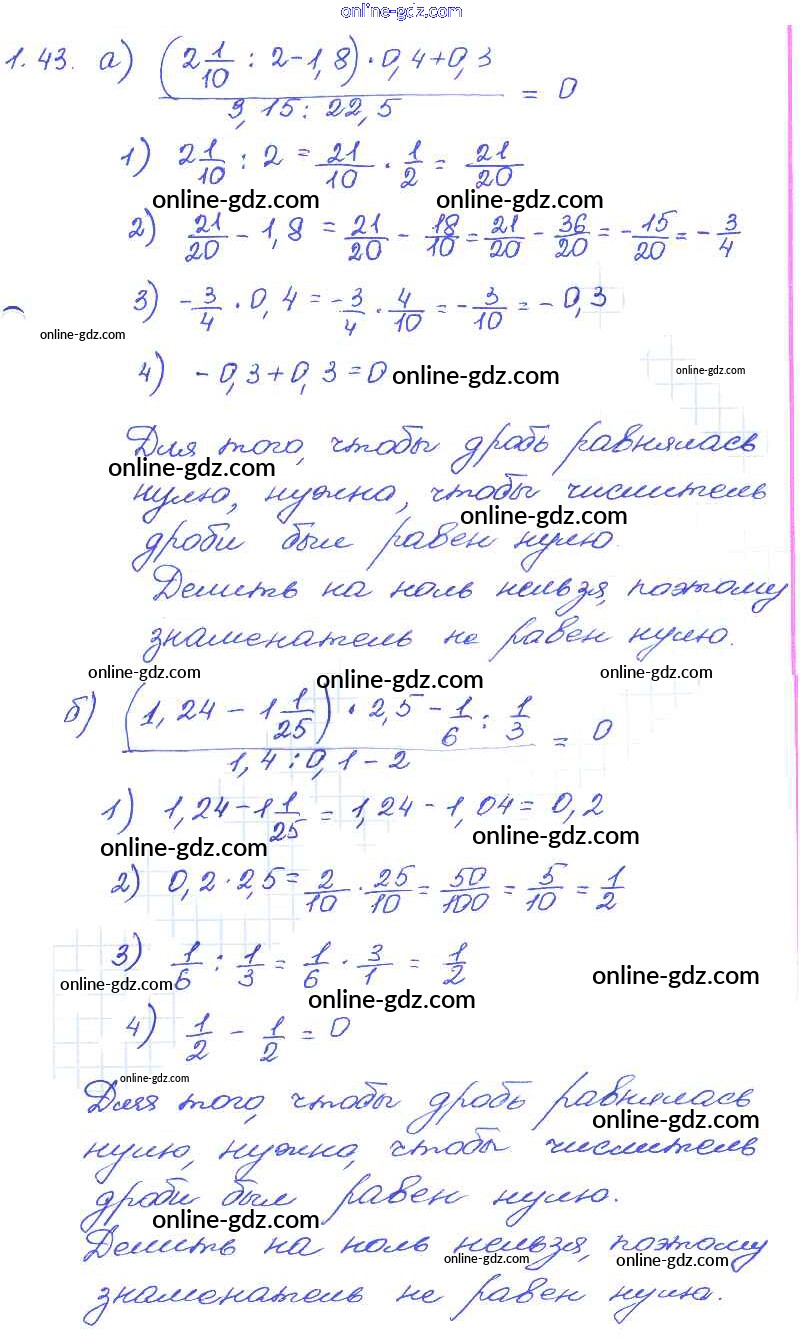 online-gdz.com
1.43. а) (2 1/10 : 2 - 1,8) · 0,4 + 0,3 / 3,15 : 22,5 = 0
1) 2 1/10 : 2 = 21/10 · 1/2 = 21/20
online-gdz.com online-gdz.com
2) 21/20 - 1,8 = 21/20 - 18/10 = 21/20 - 36/20 = -15/20 = -3/4
online-gdz.com online-gdz.com
3) -3/4 · 0,4 = -3/4 · 4/10 = -3/10 = -0,3
online-gdz.com
4) -0,3 + 0,3 = 0 online-gdz.com online-gdz.com
Для того, чтобы дробь равнялась
online-gdz.com
нулю, нужно, чтобы числитель
online-gdz.com
дроби был равен нулю.
Делить на ноль нельзя, поэтому
знаменатель не равен нулю.
online-gdz.com online-gdz.com online-gdz.com
б) (1,24 - 1 1/25) · 2,5 - 1/6 : 1/3 / 1,4 : 0,1 - 2 = 0
1) 1,24 - 1 1/25 = 1,24 - 1,04 = 0,2
online-gdz.com online-gdz.com
2) 0,2 · 2,5 = 2/10 · 25/10 = 50/100 = 5/10 = 1/2
3) 1/6 : 1/3 = 1/6 · 3/1 = 1/2
online-gdz.com online-gdz.com online-gdz.com
4) 1/2 - 1/2 = 0
online-gdz.com
Для того, чтобы дробь равнялась
online-gdz.com
нулю, нужно, чтобы числитель
дроби был равен нулю.
online-gdz.com
Делить на ноль нельзя, поэтому
online-gdz.com online-gdz.com
знаменатель не равен нулю.